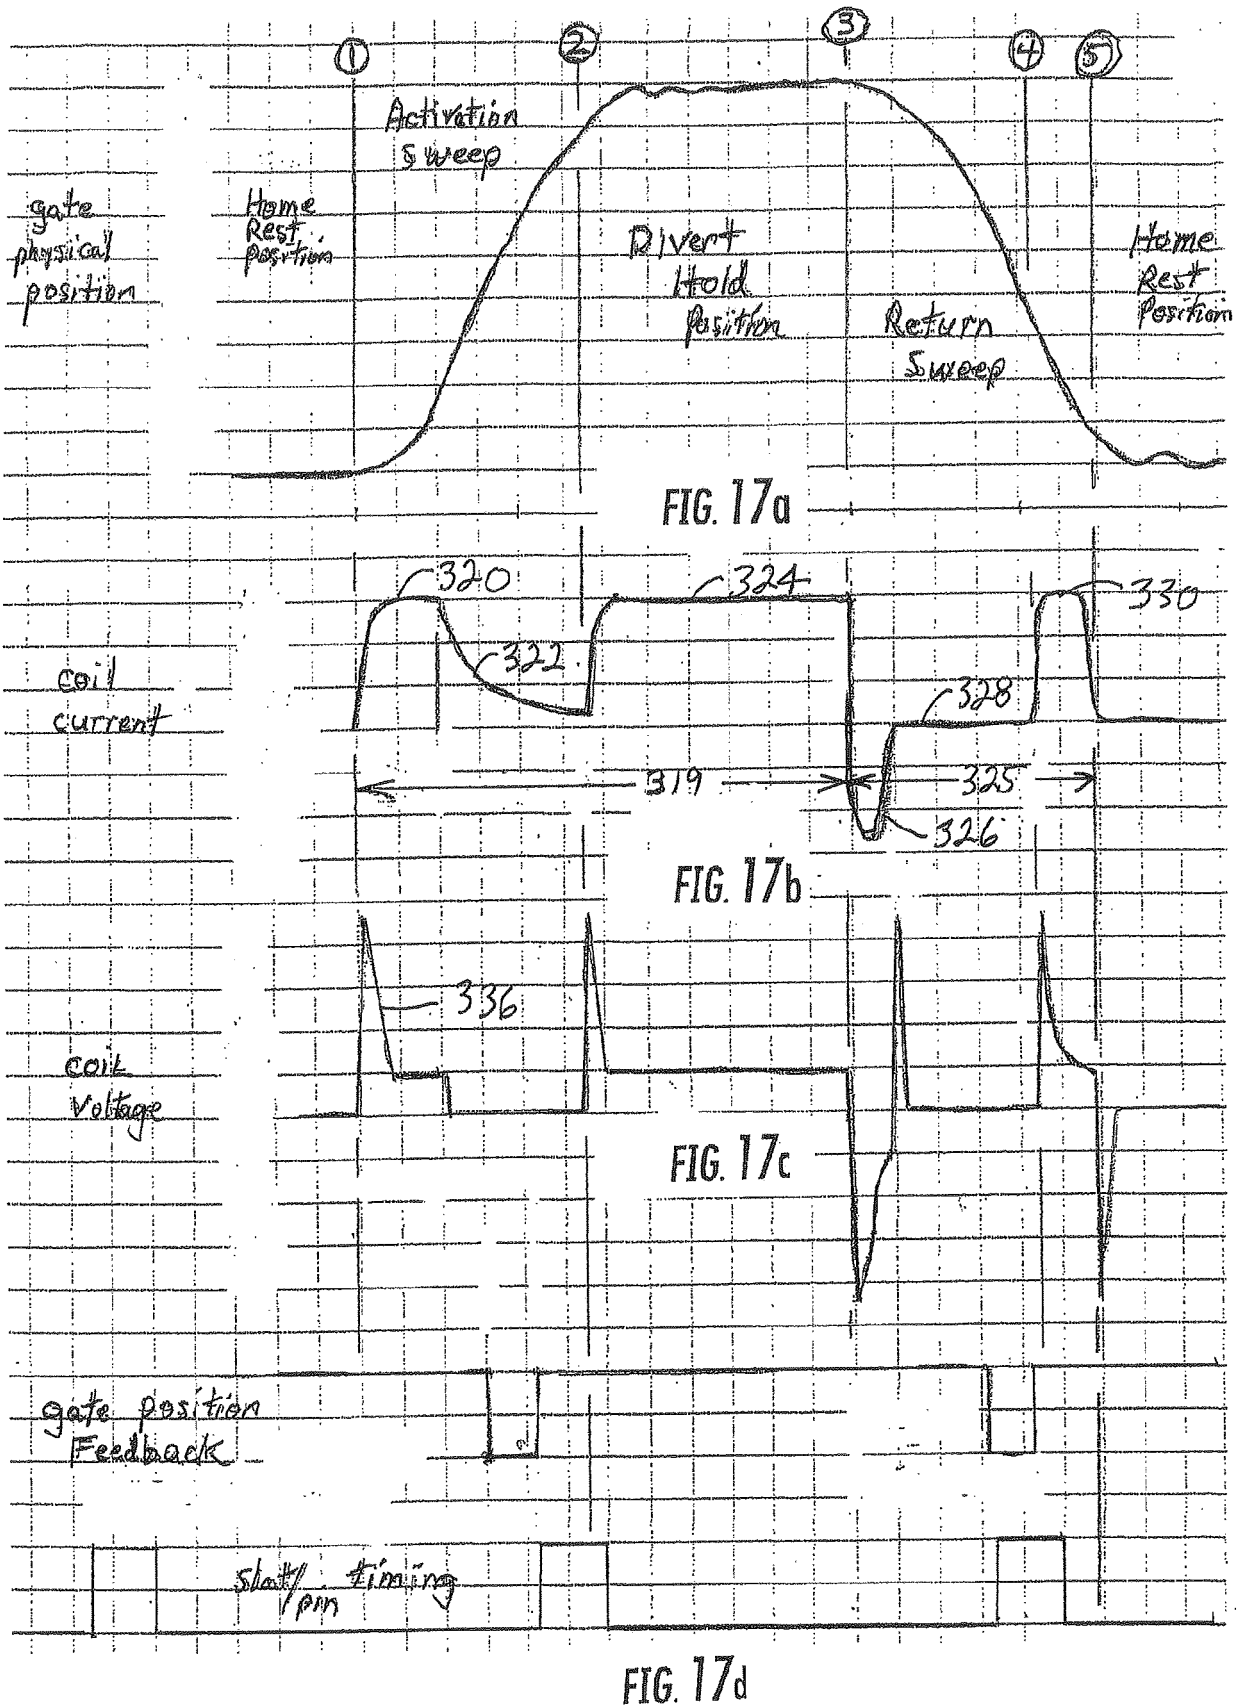 1
2
3
4
5
Activation
Sweep
gate
physical
position
Home
Rest
Position
Divert
Hold
Position
Return
Sweep
Home
Rest
Position
FIG. 17a
320
322
324
330
coil
current
328
319
325
326
FIG. 17b
336
coil
Voltage
FIG. 17c
gate position
Feedback
slat/pin timing
FIG. 17d